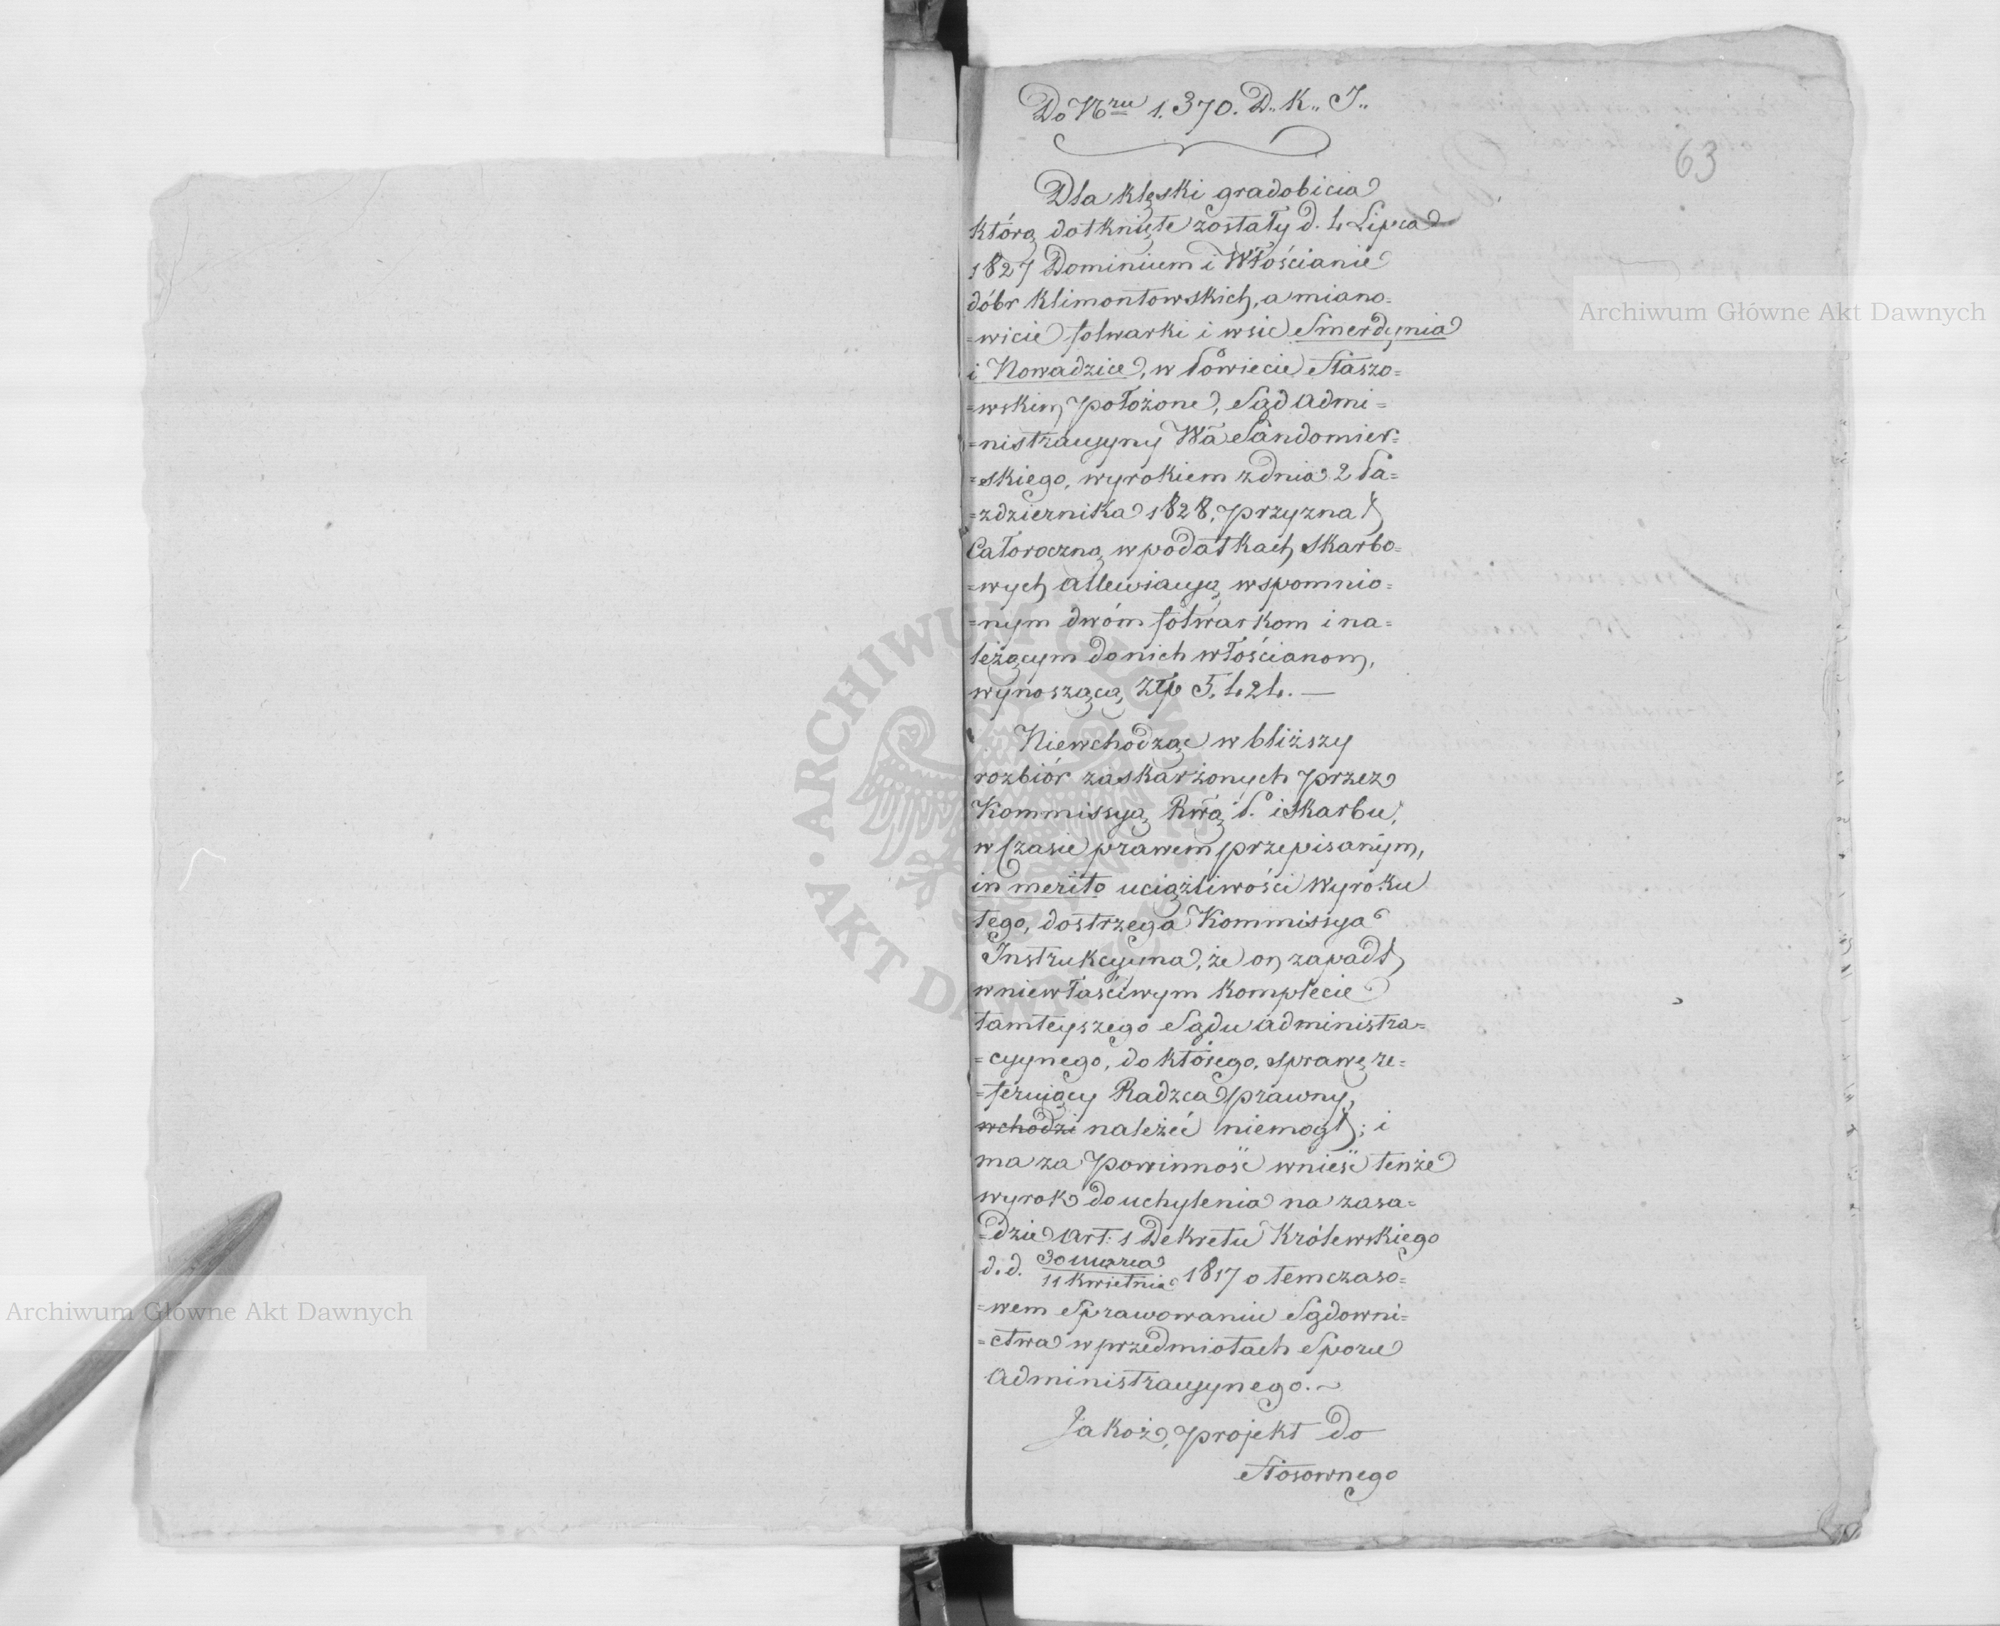 Do Nru 1.370. D.. K.. J..
63
Dla klęski gradobicia
którą dotknięte zostały d. 4 Lipca
1827 Dominium i Włościanie
dóbr Klimontowskich, a miano=
=wicie folwarki i wsie Smerdynia
i Nowadzice, w Powiecie Staszo=
=wskim położone, Sąd Admi=
=nistracyjny Wa Sandomier=
=skiego, wyrokiem z dnia 2 Pa=
=zdziernika 1828, przyznał
Całoroczną w podatkach skarbo=
=wych allewiacyą wspomnio=
=nym dwóm folwarkom i na=
leżącym do nich włościanom,
wynoszącą Złp 5,424. —
Niewchodząc w bliższy
rozbiór zaskarżonych przez
Kommissyą Rwą P. i Skarbu,
w Czasie prawem przepisanym,
in merito uciążliwości Wyroku
tego, dostrzega Kommissya
Instrukcyjna, że on zapadł
w niewłaściwym komplecie
tamteyszego Sądu administra=
=cyjnego, do którego, sprawę re=
=ferujący Radzca prawny,
wchodzi należéć niemógł; i
ma za powinność wnieść tenże
wyrok do uchylenia na zasa=
=dzie Art: 1 Dekretu Królewskiego
d.d. 30 Marca
11 Kwietnia 1817 o temczaso=
=wem Sprawowaniu Sądowni=
=ctwa w przedmiotach Sporu
Administracyjnego. ~
Jakoż, projekt do
Stosownego
Archiwum Główne Akt Dawnych
Archiwum Główne Akt Dawnych
ARCHIWUM GŁÓWNE AKT DAWNYCH